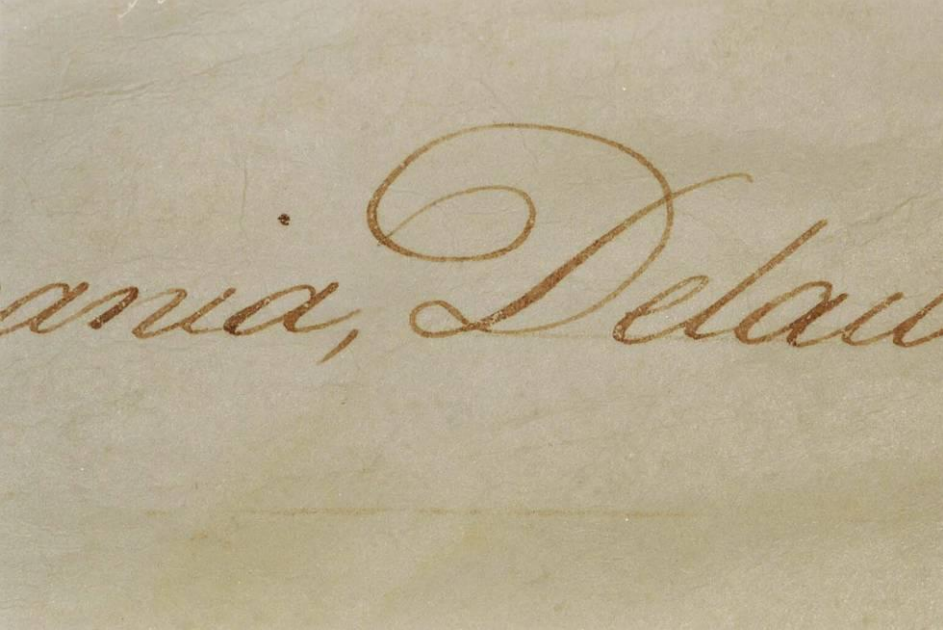 ania, Delaw